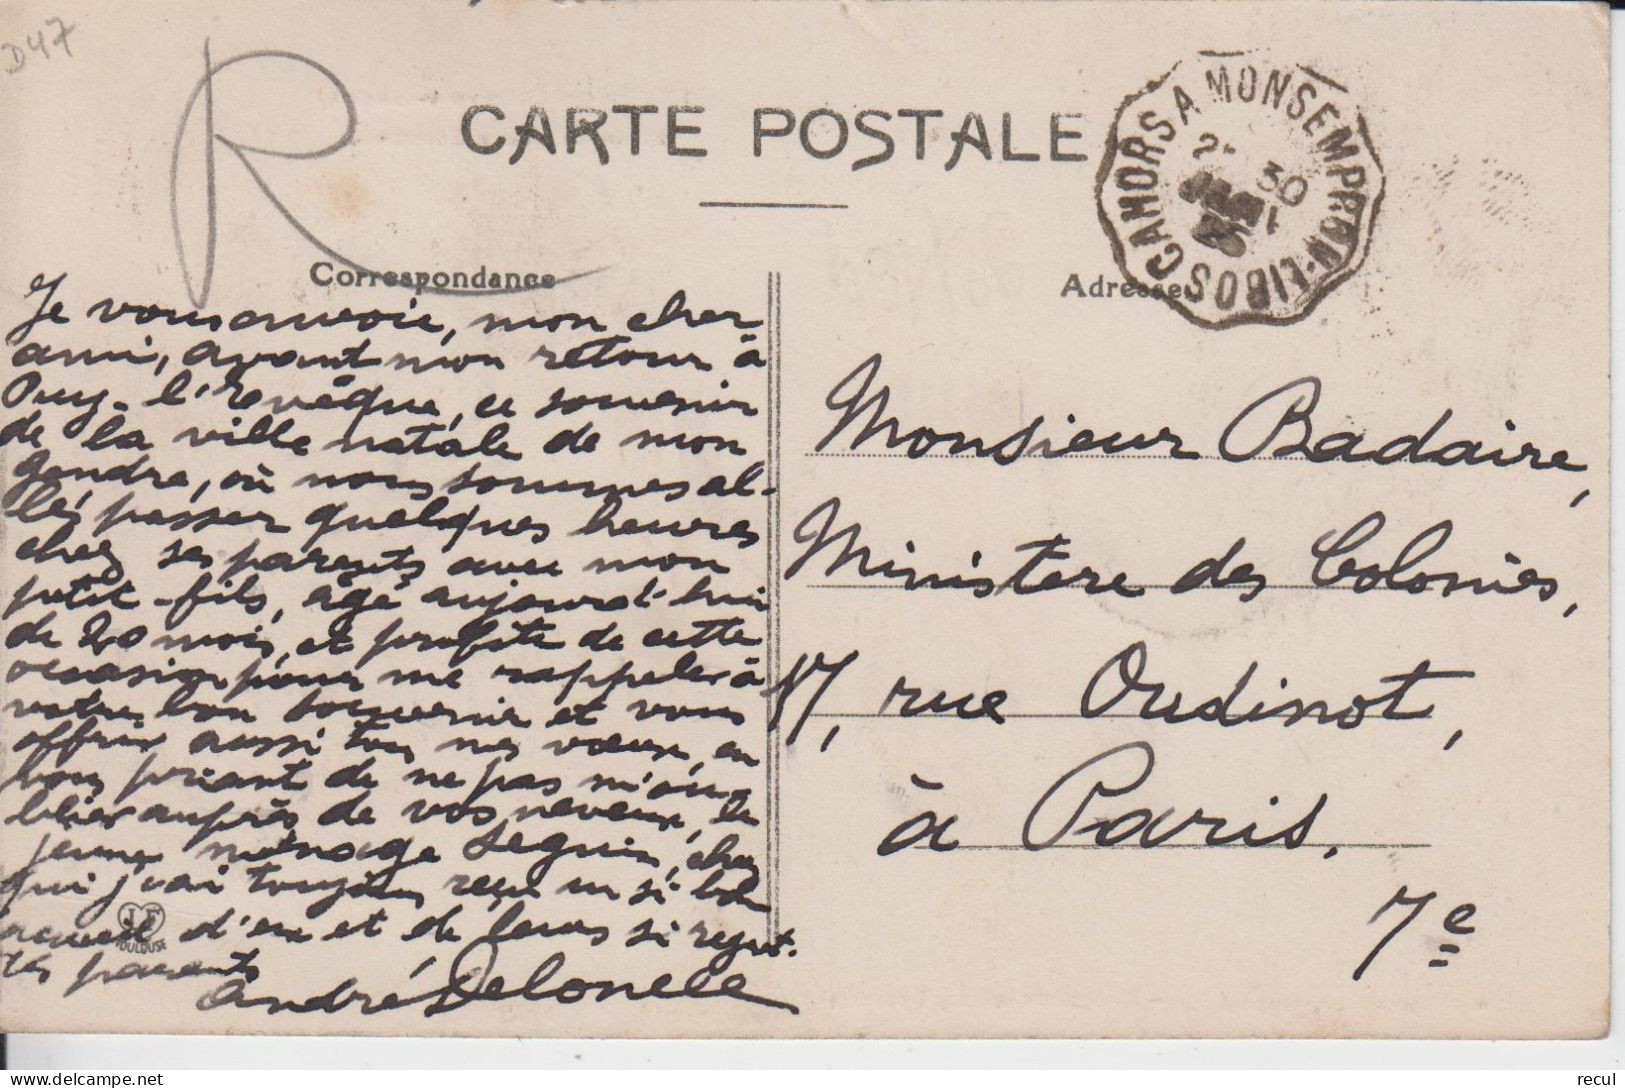 D47
R
CARTE POSTALE
CAHORS A MONSEMPRON-LIBOS
30
Correspondance
Adresse
Je vous envoie, mon cher
ami, avant mon retour à
Puy-l'Evêque, ce souvenir
de la ville natale de mon
gendre, où nous sommes al-
lés passer quelques heures
chez ses parents avec mon
petit-fils, âgé aujourd'hui
de 20 mois, et profite de cette
occasion pour me rappeler à
votre bon souvenir et vous
offrir aussi tous mes vœux, en
vous priant de ne pas m'ou-
blier auprès de vos neveux, le
jeune ménage Seguin, chez
qui j'ai toujours reçu un si bon
accueil d'eux et de leurs si regret-
tés parents
André Delonele
JF
TOULOUSE
Monsieur Badaire,
Ministère des Colonies,
17, rue Oudinot,
à Paris.
7e
recul